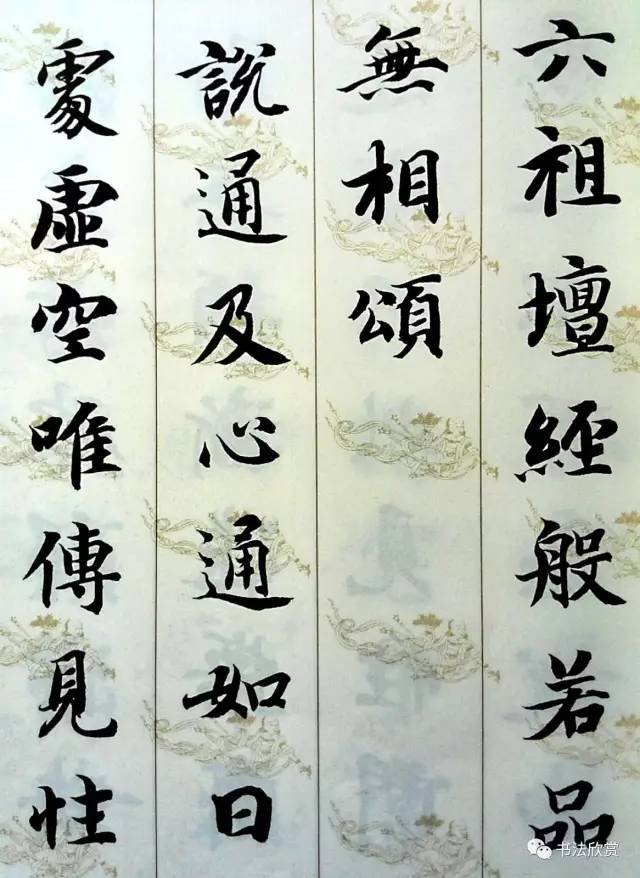 六祖壇經般若品
無相頌
說通及心通如日
處虛空唯傳見性
书法欣赏